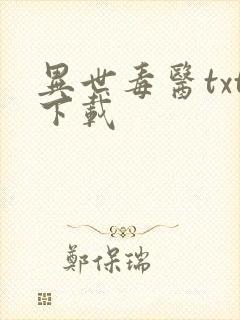 異世毒醫txt
下載
鄭保瑞